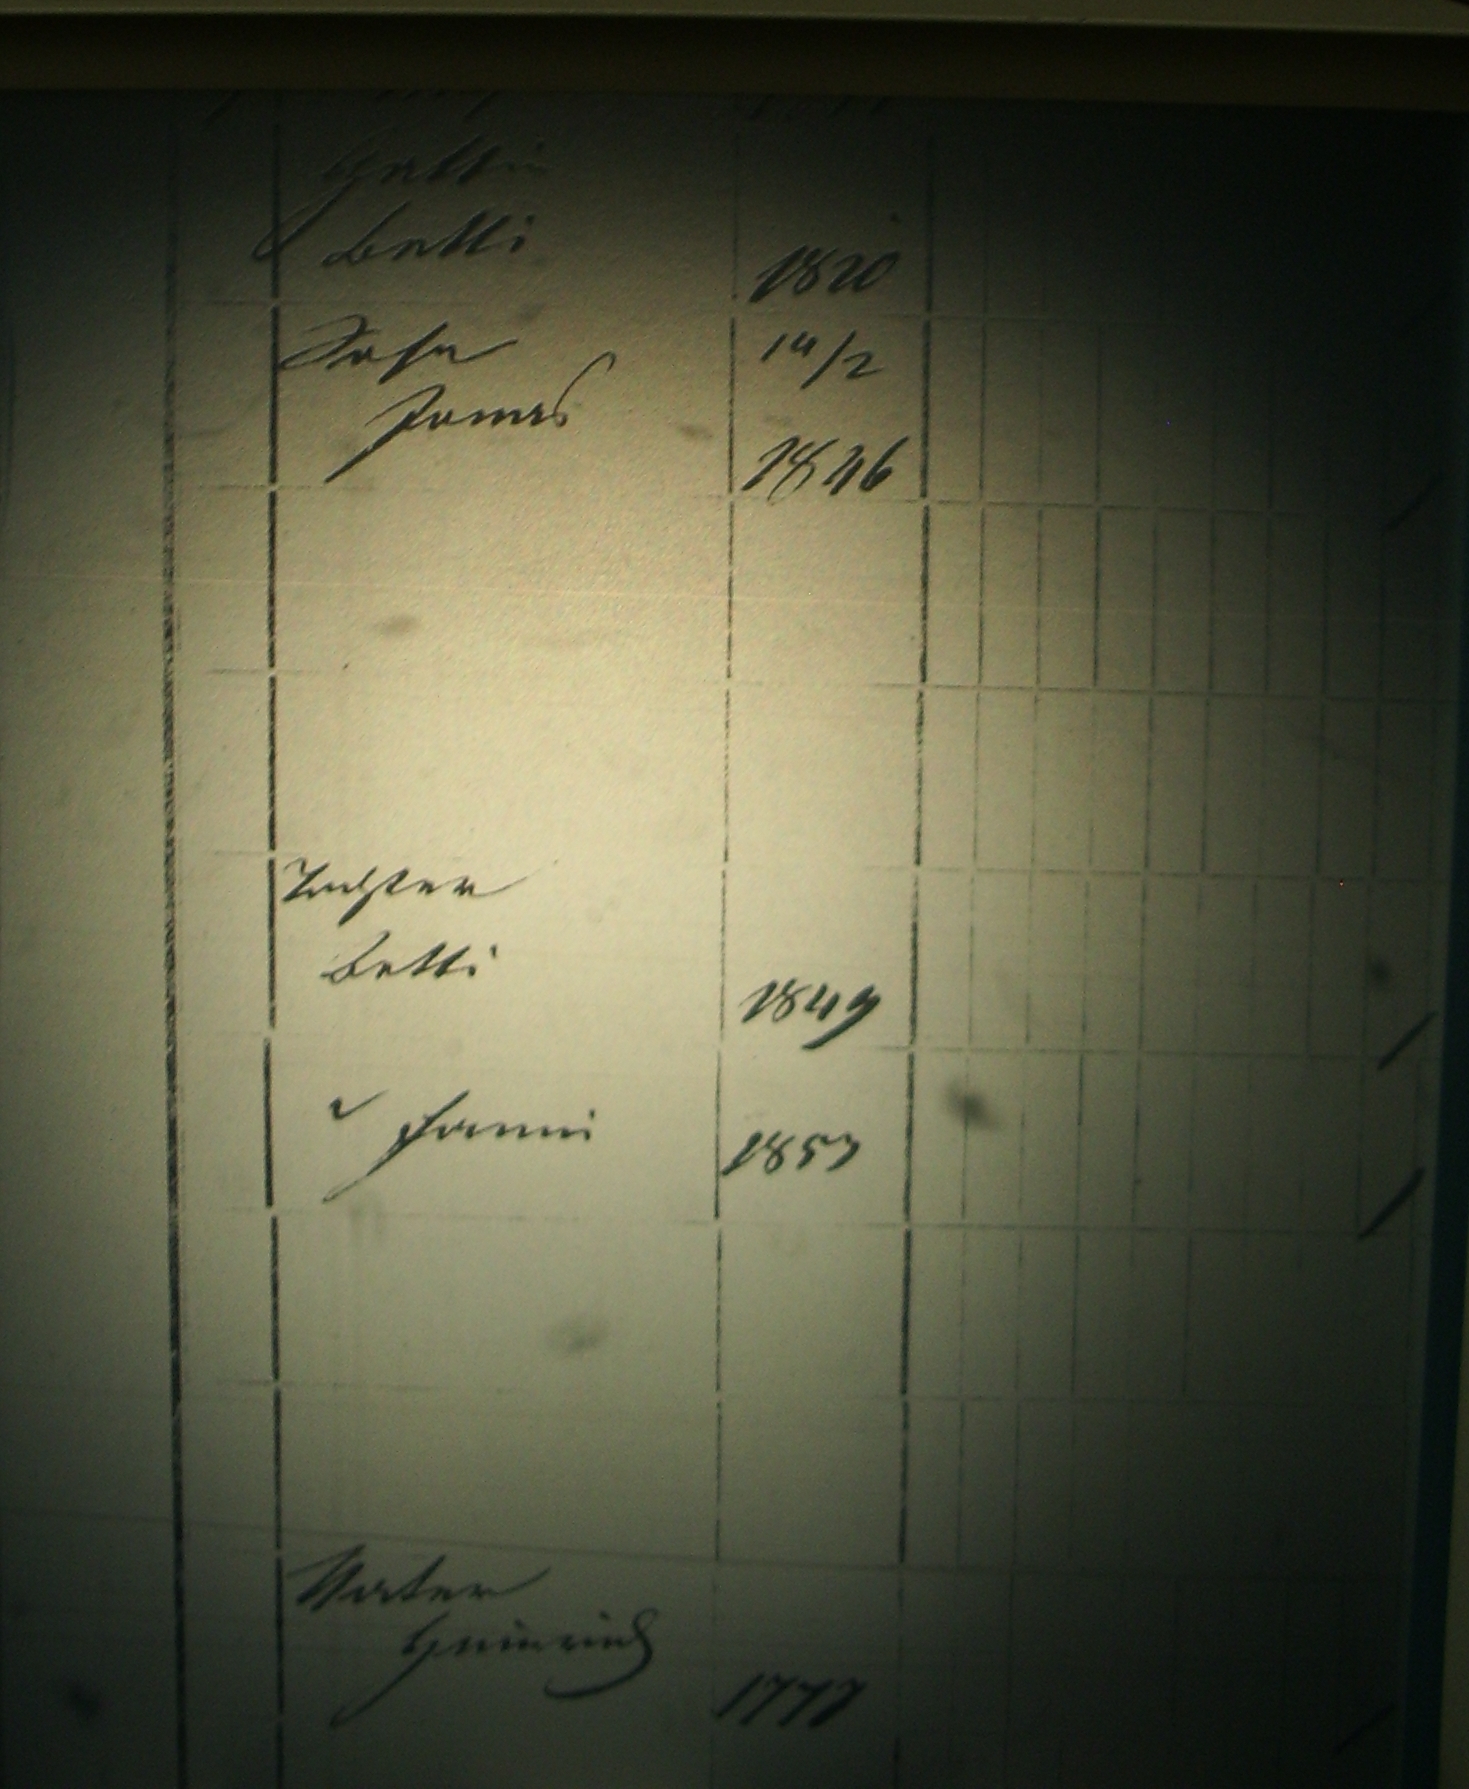 Gattin
Betti
1820
Sohn
14/2
Jonas
1846
Tochter
Betti
1849
Fanni
1853
Vater
Heinrich
1777